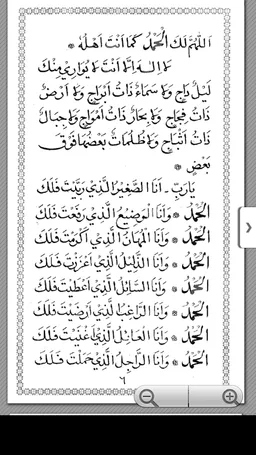 اَللّٰهُمَّ لَكَ الْحَمْدُ كَمَا اَنْتَ اَهْلُهُ ❊
لَا اِلٰهَ اِلَّا اَنْتَ لَا يُوَارِيْ مِنْكَ
لَيْلٌ دَاجٍ وَلَا سَمَاءٌ ذَاتُ اَبْرَاجٍ وَلَا اَرْضٌ
ذَاتُ فِجَاجٍ وَلَا بِحَارٌ ذَاتُ اَمْوَاجٍ وَلَا جِبَالٌ
ذَاتُ اَثْبَاجٍ وَلَا ظُلُمَاتٌ بَعْضُهَا فَوْقَ
بَعْضٍ ❊
يَارَبِّ - اَنَا الصَّغِيْرُ الَّذِيْ رَبَّيْتَ فَلَكَ
الْحَمْدُ ❊ وَاَنَا الْوَضِيْعُ الَّذِيْ رَفَعْتَ فَلَكَ
الْحَمْدُ ❊ وَاَنَا الْمُهَانُ الَّذِيْ اَكْرَمْتَ فَلَكَ
الْحَمْدُ ❊ وَاَنَا الذَّلِيْلُ الَّذِيْ اَعْزَزْتَ فَلَكَ
الْحَمْدُ ❊ وَاَنَا السَّائِلُ الَّذِيْ اَعْطَيْتَ فَلَكَ
الْحَمْدُ ❊ وَاَنَا الرَّاغِبُ الَّذِيْ اَرْضَيْتَ فَلَكَ
الْحَمْدُ ❊ وَاَنَا الْعَائِلُ الَّذِيْ اَغْنَيْتَ فَلَكَ
الْحَمْدُ ❊ وَاَنَا الرَّاجِلُ الَّذِيْ حَمَلْتَ فَلَكَ
٦